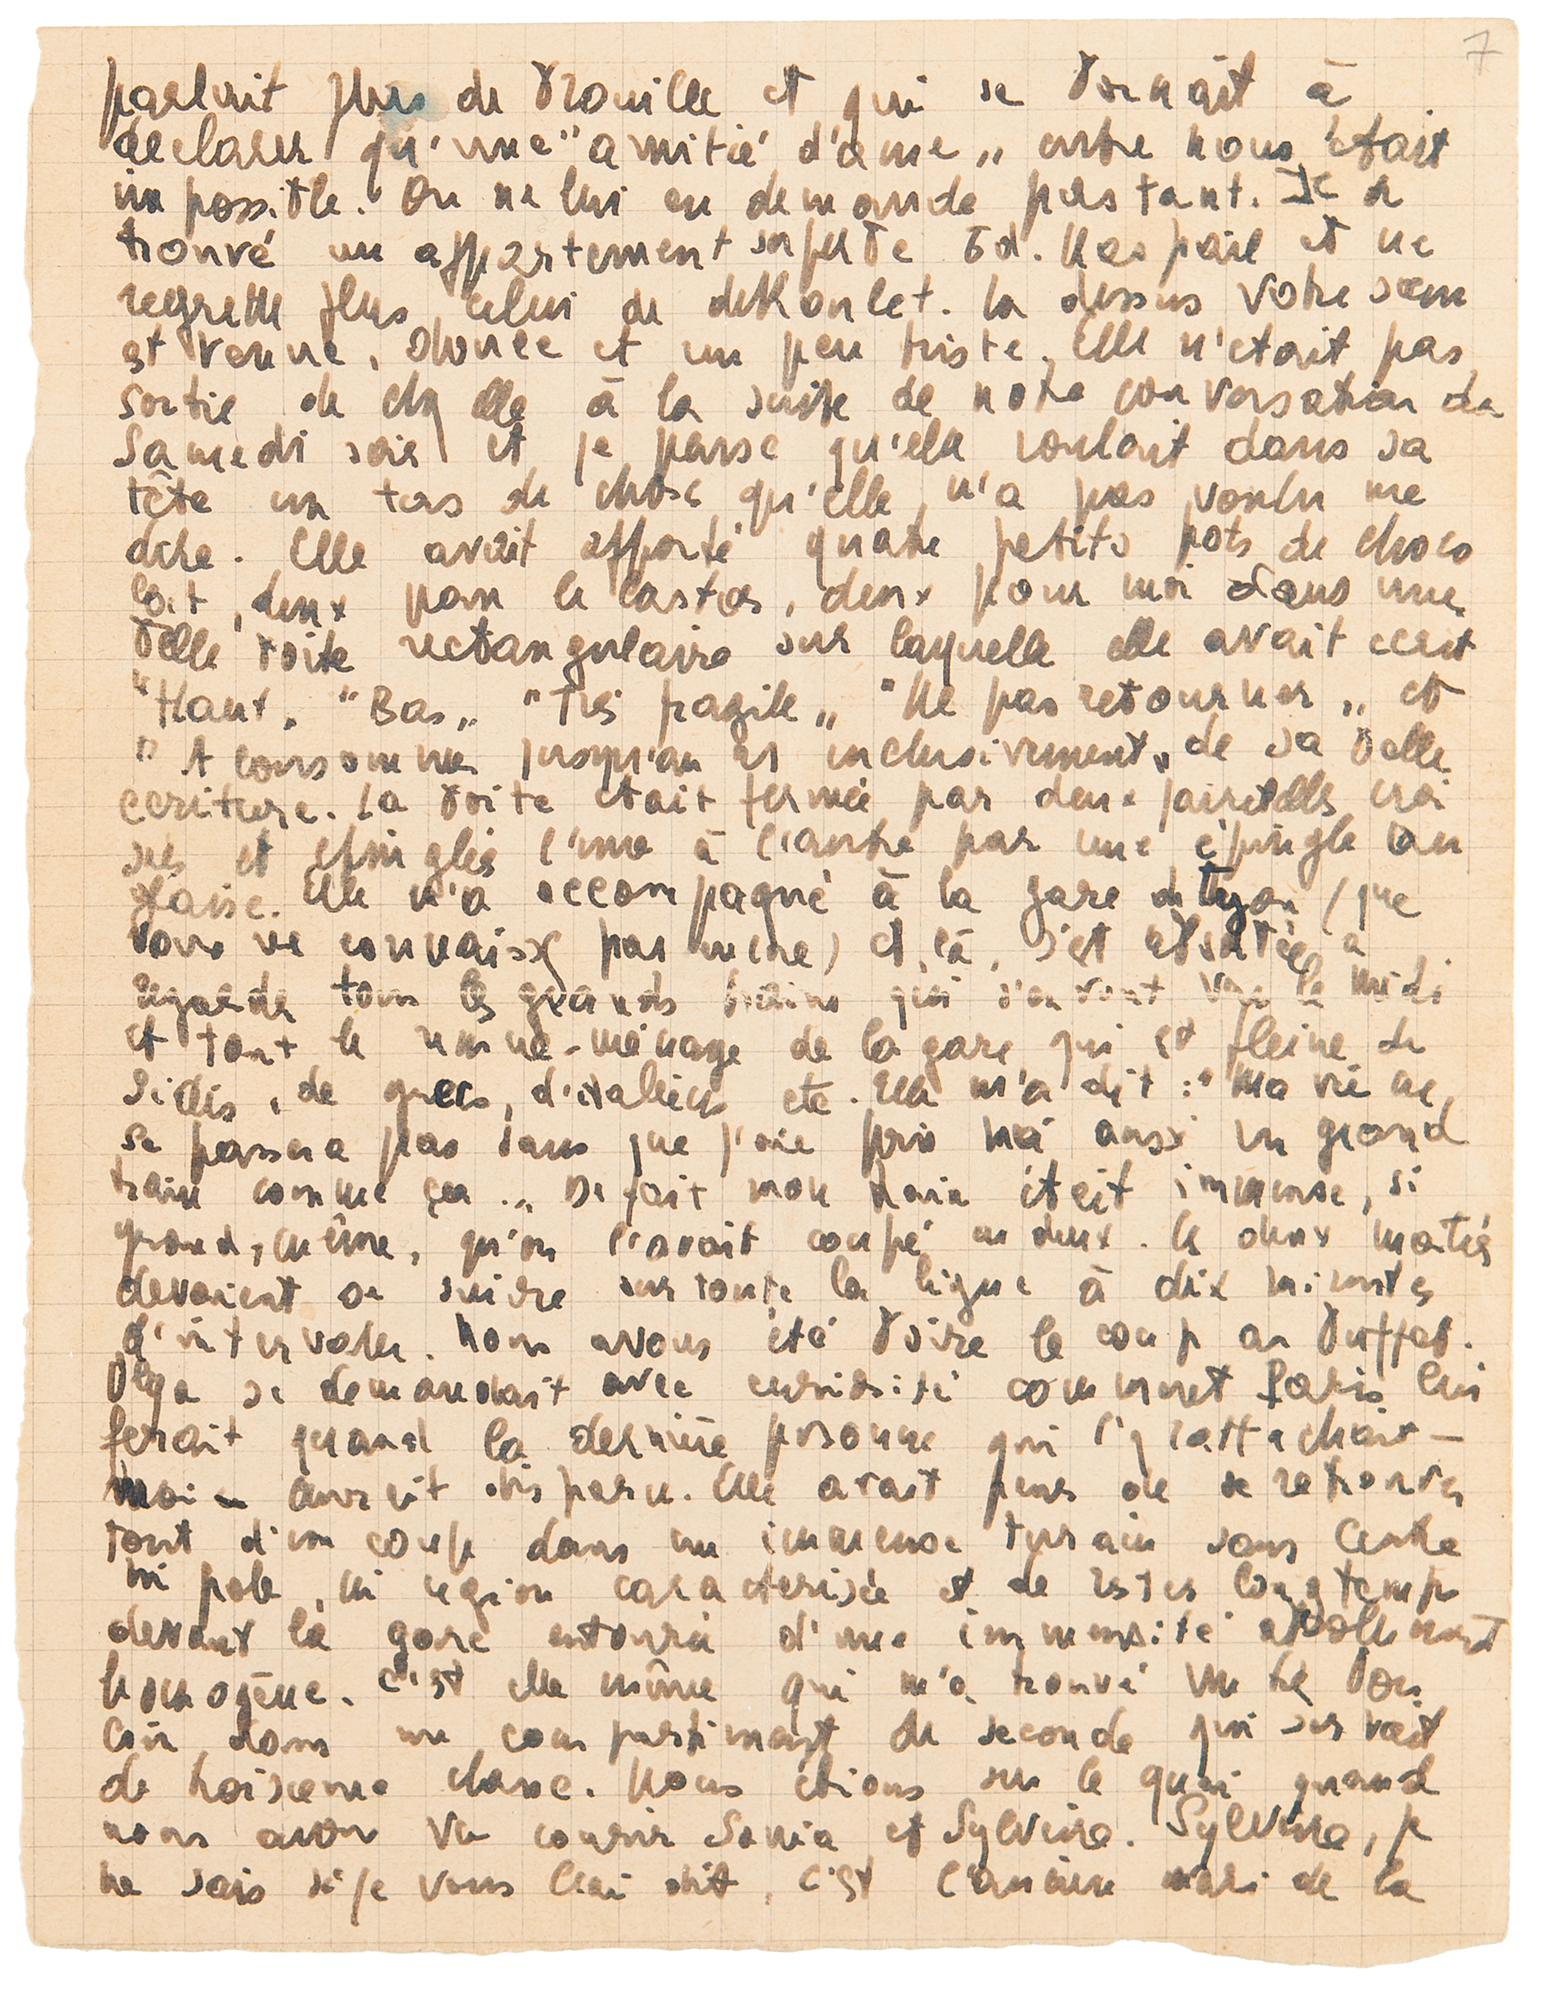 7
parlait plus de brouille et qui se bornait à
declarer qu'une "amitié d'ame" entre nous était
impossible. On ne lui en demande pas tant. Il a
trouvé un appartement superbe Bd. Raspail et ne
regrette plus celui de . La dessus votre sœur
est venue, douce et un peu triste. Elle n'était pas
sortie de chez elle à la suite de notre conversation du
Samedi soir et je pense qu'elle roulait dans sa
tête un tas de chose qu'elle n'a pas voulu me
dire. Elle avait apporté quatre petits pots de choco
lat, deux pour le Castor, deux pour moi dans une
belle boite rectangulaire sur laquelle elle avait ecrit
"Haut", "Bas", "Très fragile" "Ne pas retourner", et
"A consommer jusqu'au 21 inclusivement" de sa belle
ecriture. La boite était fermée par deux croi
sées et épinglées l'une à l'autre par une épingle an
glaise. Elle m'a accompagné à la gare de Lyon (que
vous ne connaissez pas meme) et, là, s'est absorbée à
regarder tous les grands trains qui s'en vont vers le midi
et tout le remue-ménage de la gare qui est pleine de
Sidis, de grecs, d'italiens etc. Elle m'a dit : "Ma vie ne
se passera pas sans que j'aie pris moi aussi un grand
train comme ça". De fait mon train était immense, si
grand, même, qu'on l'avait coupé en deux. Les deux moitiés
devaient se suivre sur toute la ligne à dix minutes
d'intervalle. Nous avons été boire le coup au buffet.
Olga se demandait avec curiosité comment Paris lui
ferait quand la dernière personne qui l'y rattachait -
moi - aurait disparu. Elle avait peur de se retrouver
tout d'un coup dans un immense terrain sans centre
ni pole, ni region caracterisée et de rester longtemps
devant la gare entourée d'une immensité absolument
homogène. C'est elle même qui m'a trouvé un très bon
coin dans un compartiment de seconde qui servait
de troisieme classe. Nous étions sur le quai quand
nous avons vu courir Sonia et Sylvère. Sylvère, je
ne sais si je vous l'ai dit, c'est l'ancien mari de la